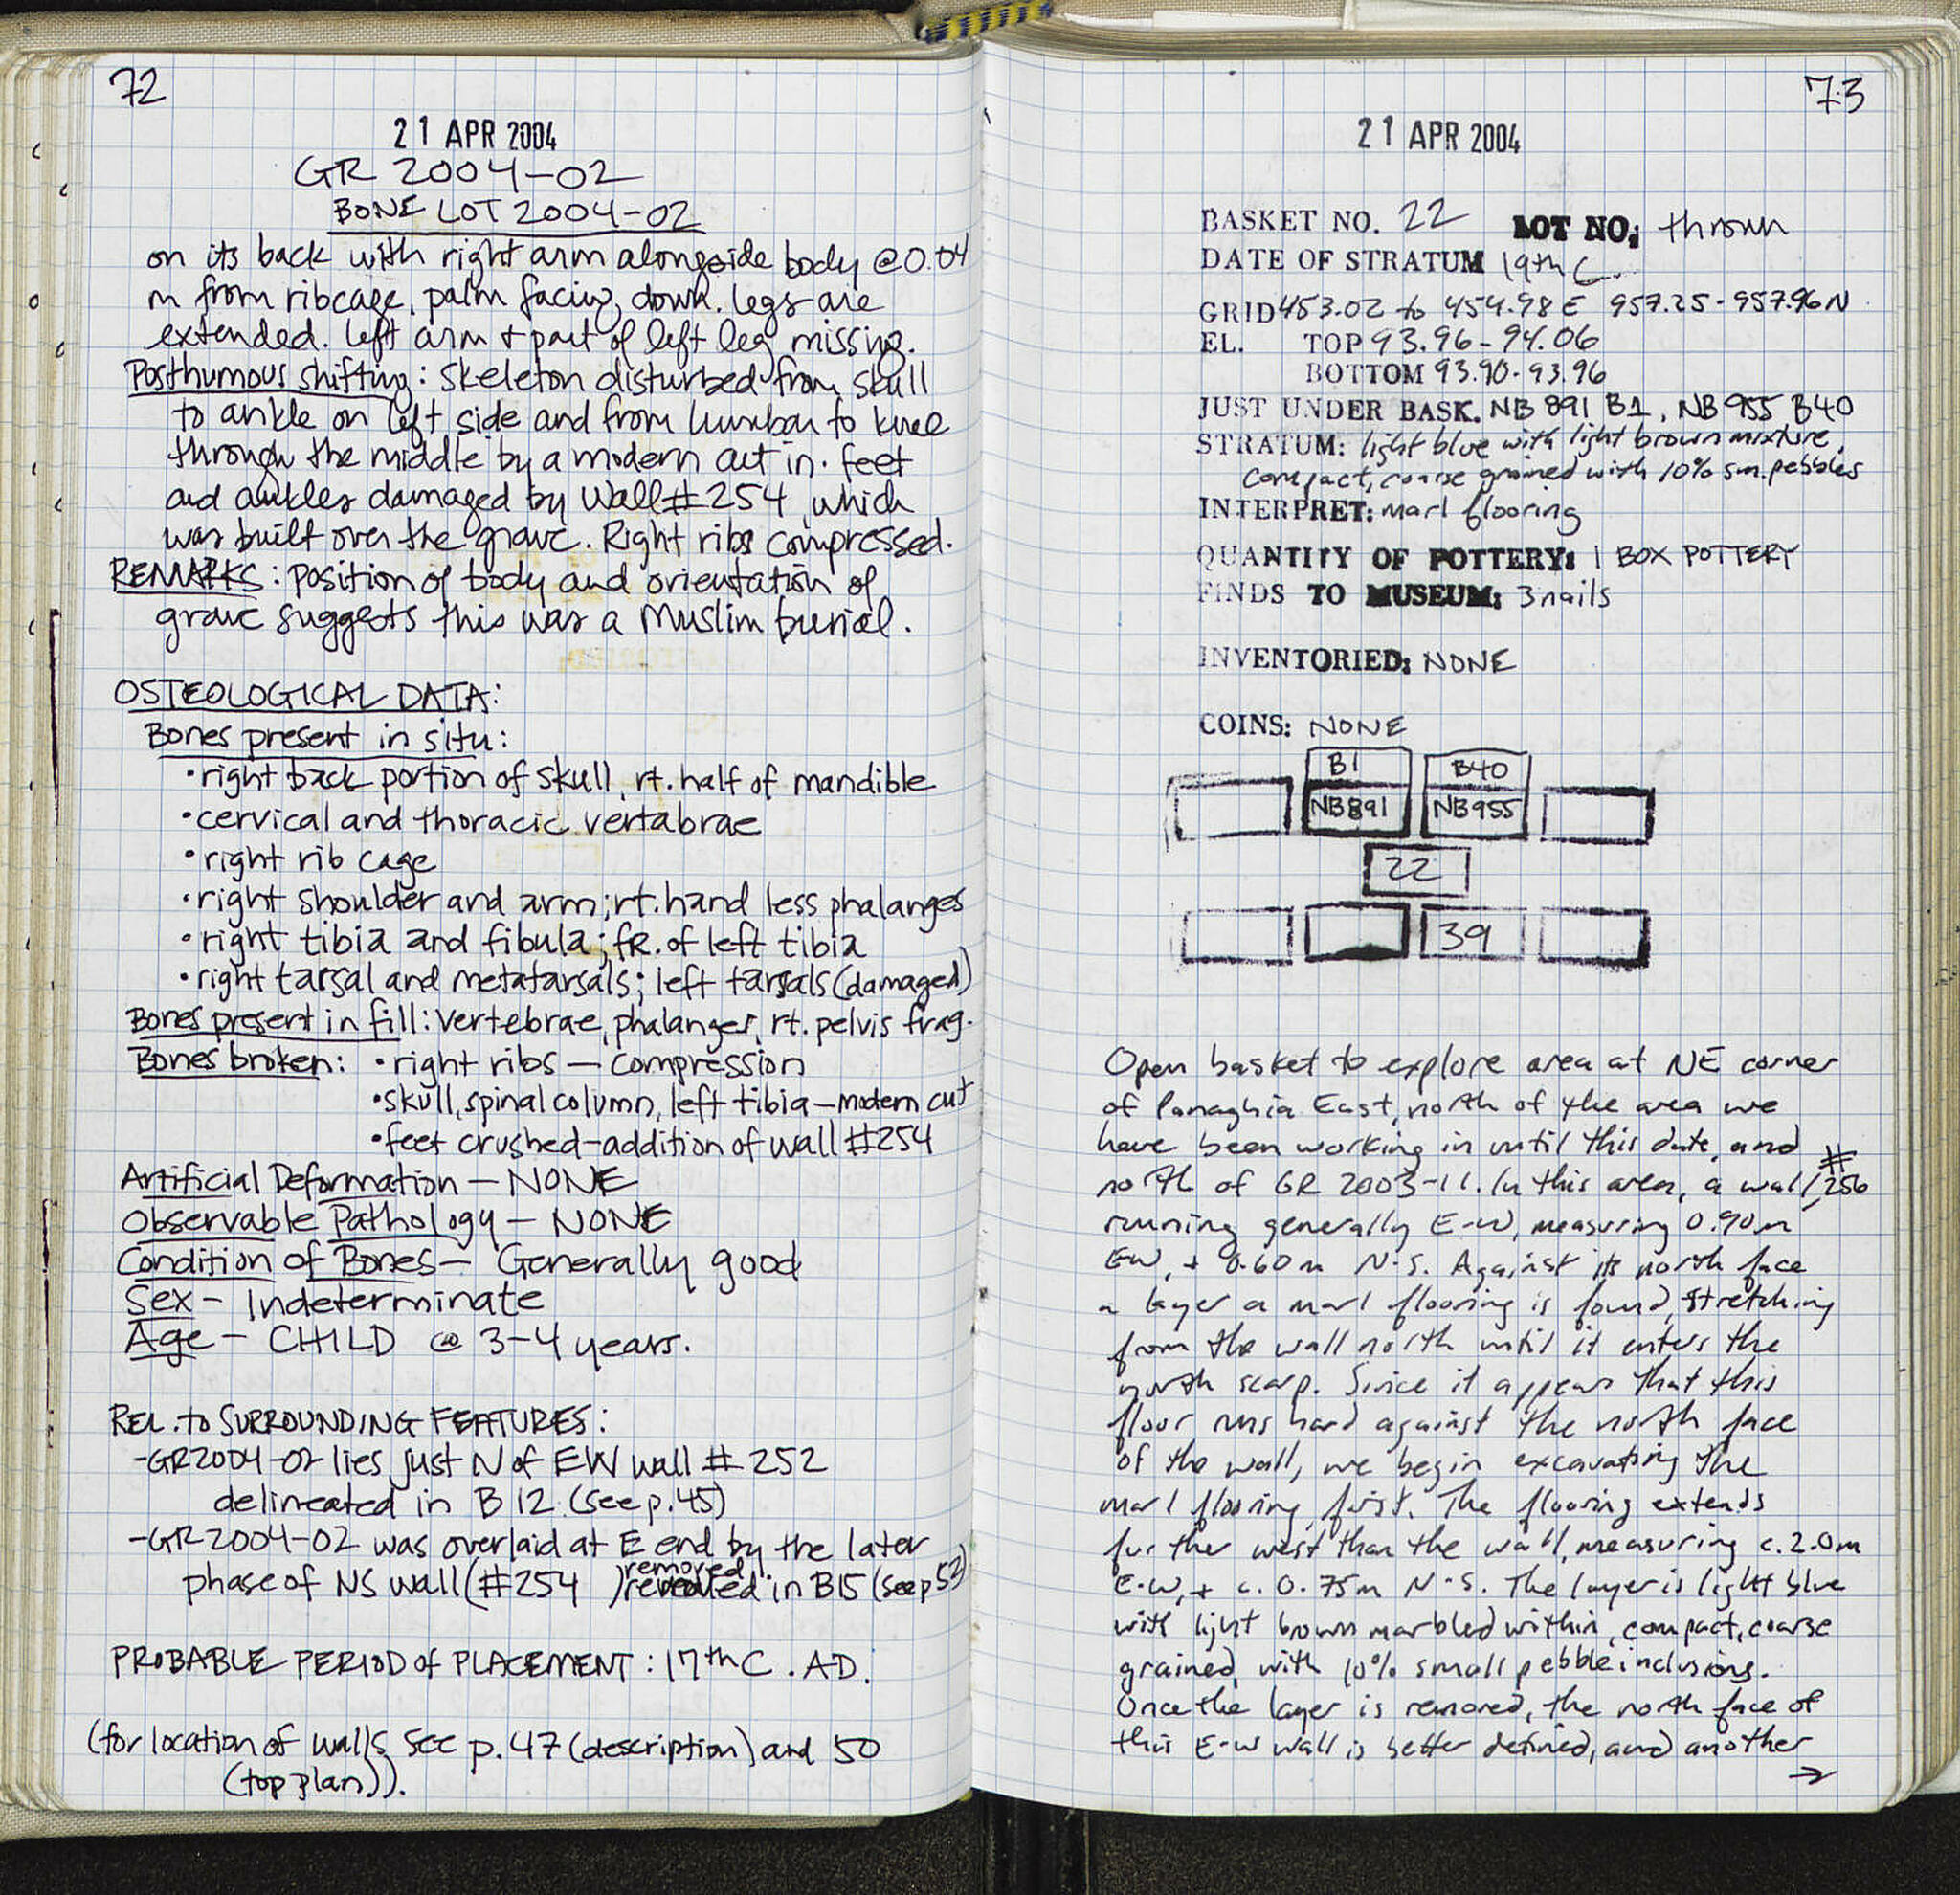 72
21 APR 2004
GR 2004-02
BONE LOT 2004-02
on its back with right arm alongside body @0.04
m from ribcage, palm facing down. legs are
extended. left arm + part of left leg missing.
Posthumous shifting: skeleton disturbed from skull
to ankle on left side and from lumbar to knee
through the middle by a modern cut in. feet
and ankles damaged by Wall #254 which
was built over the grave. Right ribs compressed.
REMARKS: position of body and orientation of
grave suggests this was a Muslim burial.
OSTEOLOGICAL DATA:
Bones present in situ:
• right back portion of skull, rt. half of mandible
• cervical and thoracic vertabrae
• right rib cage
• right shoulder and arm; rt. hand less phalanges
• right tibia and fibula; fr. of left tibia
• right tarsal and metatarsals; left tarsals (damaged)
Bones present in fill: vertebrae, phalanges, rt. pelvis frag.
Bones broken: • right ribs — compression
• skull, spinal column, left tibia — modern cut
• feet crushed - addition of wall #254
Artificial Deformation — NONE
Observable Pathology — NONE
Condition of Bones — Generally good
Sex — Indeterminate
Age — CHILD @ 3-4 years.
REL. to SURROUNDING FEATURES:
-GR2004-02 lies just N of EW wall # 252
delineated in B12 (see p.45)
-GR2004-02 was overlaid at E end by the later
phase of NS wall (#254 ) removed in B15 (see p 52)
PROBABLE PERIOD of PLACEMENT: 17th C. AD.
(for location of walls see p. 47 (description) and 50
(top plan)).
73
21 APR 2004
BASKET NO. 22 LOT NO: thrown
DATE OF STRATUM 19th C.
GRID 453.02 to 454.98 E 957.25 - 957.96 N
EL. TOP 93.96 - 94.06
BOTTOM 93.90 - 93.96
JUST UNDER BASK. NB 891 B1, NB 955 B40
STRATUM: light blue with light brown mixture,
compact, coarse grained with 10% sm. pebbles
INTERPRET: marl flooring
QUANTITY OF POTTERY: 1 BOX POTTERY
FINDS TO MUSEUM: 3 nails
INVENTORIED: NONE
COINS: NONE
B1 B40
NB891 NB955
22
39
Open basket to explore area at NE corner
of Panaghia East, north of the area we
have been working in until this date, and
north of GR 2003-11. In this area, a wall, #256
running generally E-W, measuring 0.90m
EW, + 0.60m N-S. Against its north face
a layer a marl flooring is found, stretching
from the wall north until it enters the
north scarp. Since it appears that this
floor runs hard against the north face
of the wall, we begin excavating the
marl flooring first. The flooring extends
further west than the wall, measuring c. 2.0m
E-W, + c. 0.75m N-S. The layer is light blue
with light brown marbled within, compact, coarse
grained, with 10% small pebble inclusions.
Once the layer is removed, the north face of
this E-W wall is better defined, and another
→